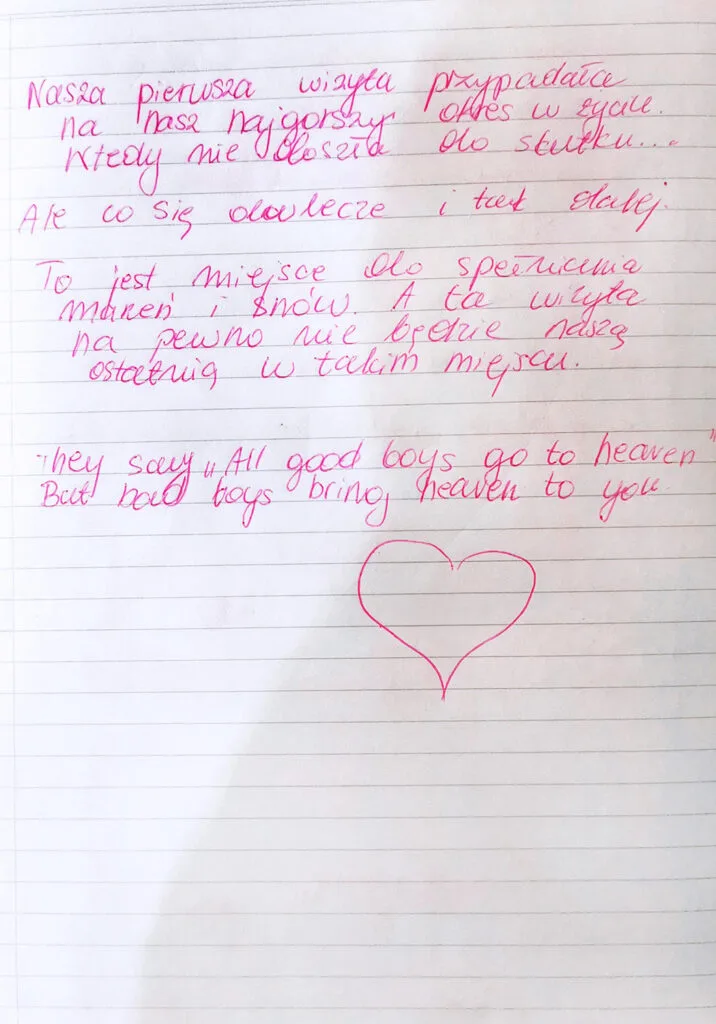 Nasza pierwsza wizyta przypadała
na nasz najgorszy okres w życiu.
Wtedy nie doszła do skutku...
Ale co się odwlecze i tak dalej.
To jest miejsce do spełnienia
marzeń i snów. A ta wizyta
na pewno nie będzie naszą
ostatnią w takim miejscu.
They say „All good boys go to heaven”
But bad boys bring heaven to you